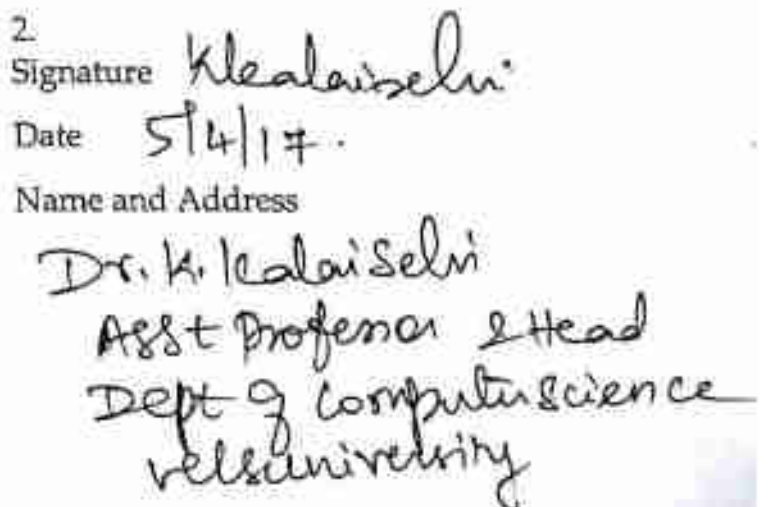 2.
Signature Kkalaiselvi
Date 5/4/17.
Name and Address
Dr. K. Kalaiselvi
Asst Professor & Head
Dept of Computer Science
vels university